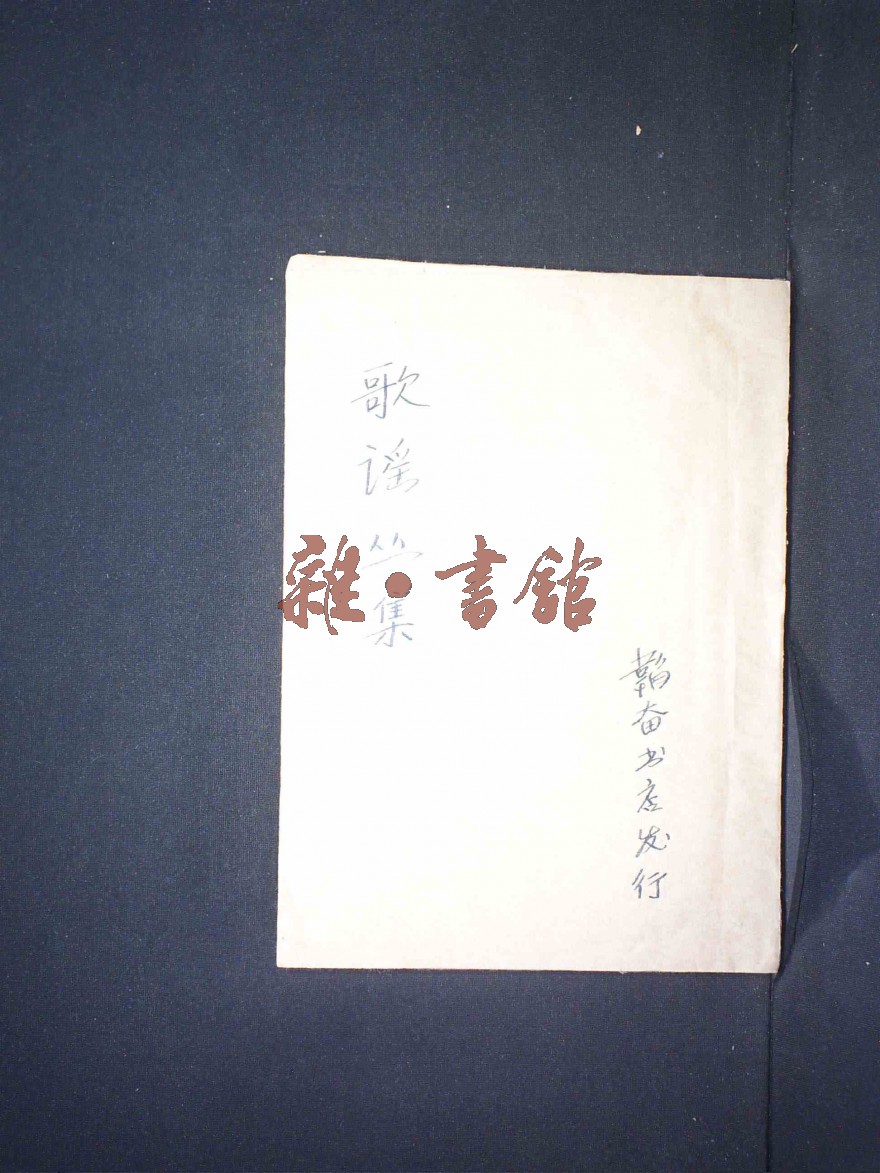 歌谣丛集
雜·書館
韬奋书店发行